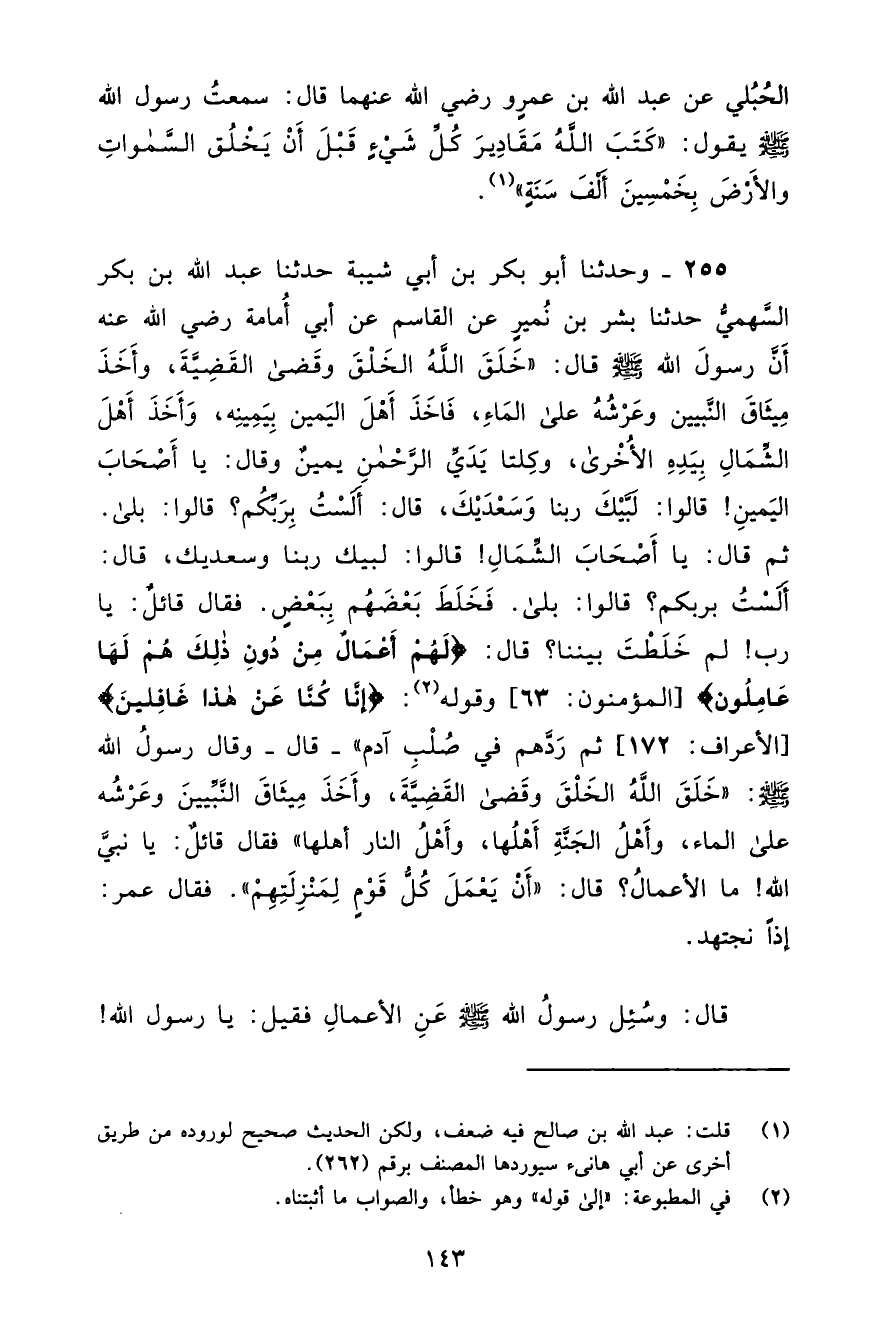 الحُبُلي عن عبد الله بن عمرٍو رضي الله عنهما قال: سمعتُ رسول الله
ﷺ يقول: «كَتَبَ اللَّهُ مَقَادِيرَ كُلِّ شَيْءٍ قَبْلَ أَنْ يَخْلُق السَّمٰواتِ
والأَرْضَ بِخَمْسِينَ أَلْفَ سَنَةٍ»(١).
٢٥٥ ـ وحدثنا أبو بكر بن أبي شيبة حدثنا عبد الله بن بكر
السَّهميُّ حدثنا بشر بن نُميرٍ عن القاسم عن أبي أُمامة رضي الله عنه
أَنَّ رسولَ الله ﷺ قال: «خَلَقَ اللَّهُ الخَلْقَ وقَضىٰ القَضِيَّةَ، وأَخَذَ
مِيثَاقَ النَّبيين وعَرْشُهُ علىٰ المَاءِ، فَاخَذَ أَهْلَ اليَمين بِيَمِينِه، وَأَخَذَ أَهْلَ
الشِّمَالِ بِيَدِهِ الأُخْرىٰ، وكِلتا يَدَيِّ الرَّحْمٰنِ يمينٌ وقال: يا أَصْحَابَ
اليَمينِ! قالوا: لَبَّيْكَ ربنا وَسَعْدَيْكَ، قال: أَلَسْتُ بِرَبِّكُم؟ قالوا: بلىٰ.
ثم قال: يا أَصْحَابَ الشِّمَالِ! قالوا: لبيك ربنا وسعديك، قال:
أَلَسْتُ بربكم؟ قالوا: بلىٰ. فَخَلَطَ بَعْضَهُم بِبَعْضٍ. فقال قائلٌ: يا
رب! لم خَلَطْتَ بيننا؟ قال: ﴿لَهُمْ أَعْمَالٌ مِنْ دُونِ ذٰلِكَ هُمْ لَهَا
عَامِلُون﴾ [المؤمنون: ٦٣] وقوله(٢): ﴿إنَّا كُنَّا عَنْ هٰذا غَافِلينَ﴾
[الأعراف: ١٧٢] ثم رَدَّهم في صُلْبِ آدم» ـ قال ـ وقال رسولُ الله
ﷺ: «خَلَقَ اللَّهُ الخَلْقَ وقَضىٰ القَضِيَّةَ، وأَخَذَ مِيثَاقَ النَّبِّيينَ وعَرْشُه
علىٰ الماء، وأَهْلُ الجَنَّةِ أَهْلُها، وأَهْلُ النار أهلها» فقال قائلٌ: يا نبيَّ
الله! ما الأعمالُ؟ قال: «أَنْ يَعْمَلَ كُلُّ قَوْمٍ لِمَنْزِلَتِهِمْ». فقال عمر:
إذاً نجتهد.
قال: وسُئِل رسولُ الله ﷺ عَنِ الأعمالِ فقيل: يا رسول الله!
(١) قلت: عبد الله بن صالح فيه ضعف، ولكن الحديث صحيح لوروده من طريق
أخرى عن أبي هانىء سيوردها المصنف برقم (٢٦٢).
(٢) في المطبوعة: «إلىٰ قوله» وهو خطأ، والصواب ما أثبتناه.
١٤٣